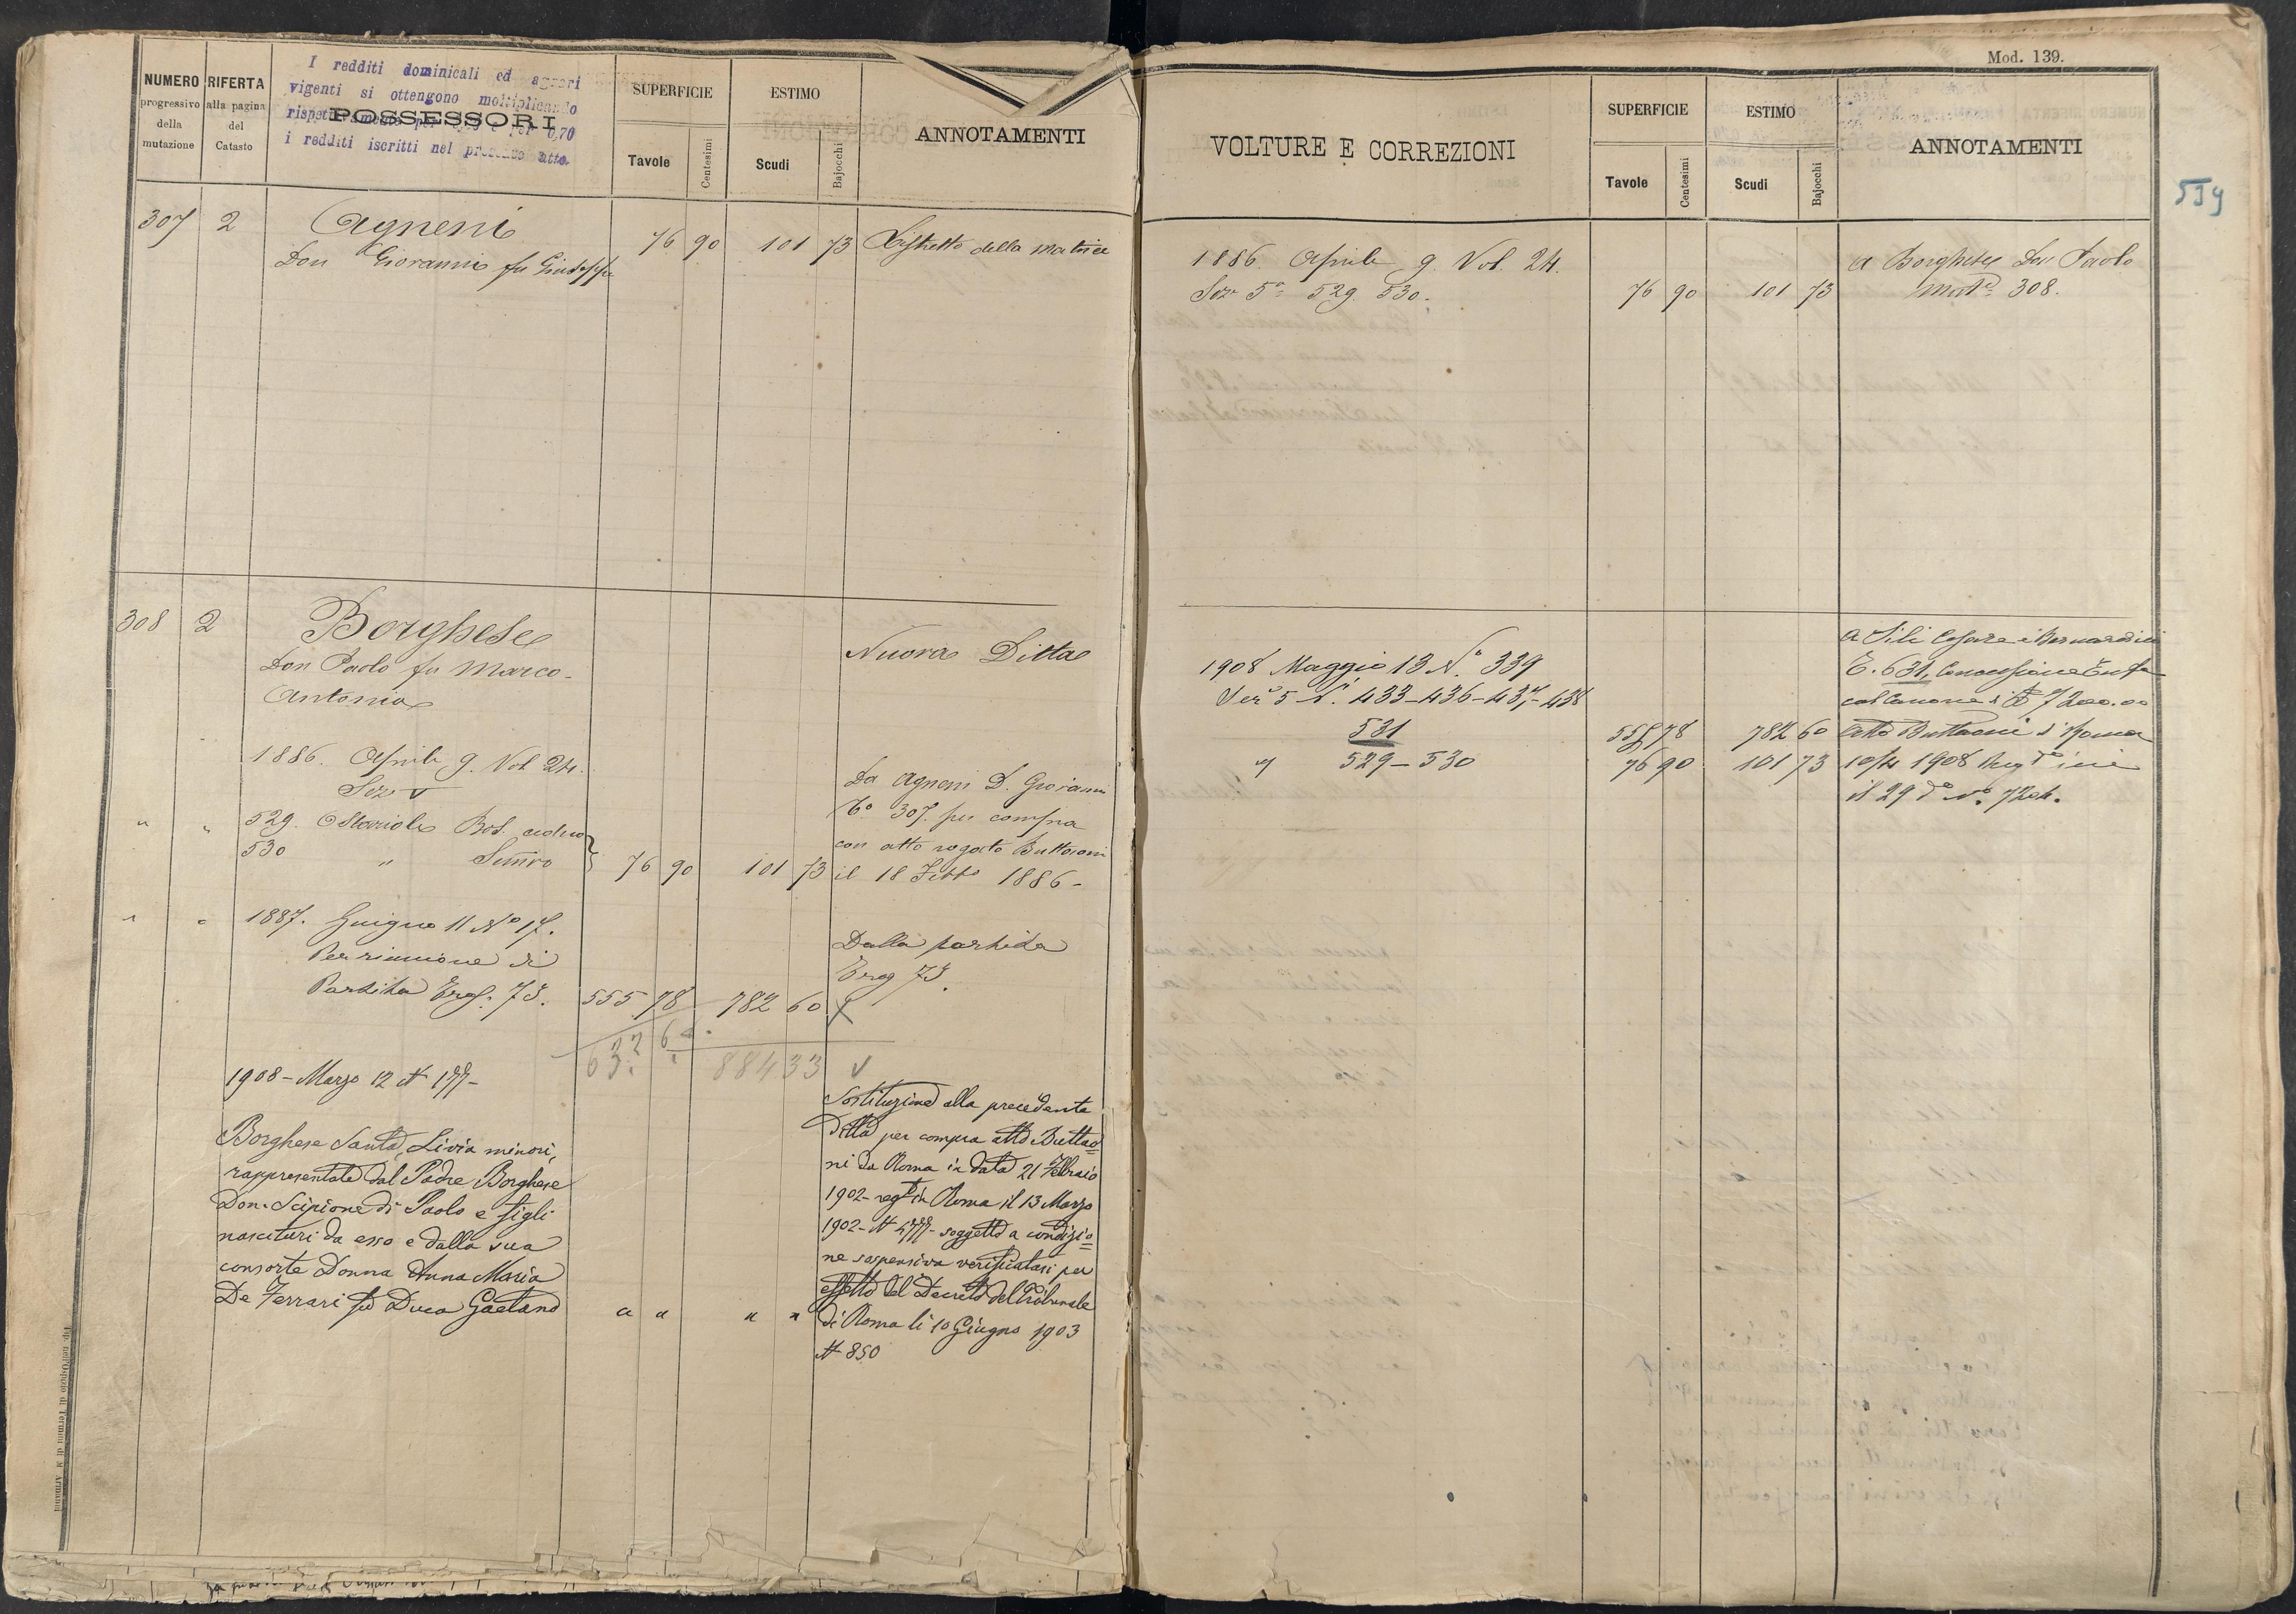 NUMERO
progressivo
della
mutazione
RIFERTA
alla pagina
del
Catasto
I redditi dominicali ed agrari
vigenti si ottengono moltiplicando
POSSESSORI
0,70
i redditi iscritti nel
SUPERFICIE
Tavole
Centesimi
ESTIMO
Scudi
Bajocchi
ANNOTAMENTI
307 2 Agneni 76 90 101 73 Ristretto della Matrice
Don Giovanni fu Giuseppe
308 2 Borghese Nuova Ditta
Don Paolo fu Marco-
Antonio
1886. Aprile 9. Vol. 24.
Sez V
529. Bos. ceduo
530 " Semivo
" "
76 90 101 73
Da Agneni D. Giovanni
307. per compra
con atto rogato Buttaoni
il 18 Febb 1886-
" " 1887. Giugno 11 Nº 17.
Per riunione di
Partita 73.
555 78 782 60
Dalla partita
73.
632 6
884 33
1908 - Marzo 12 N 177-
Borghese Santa, Livia minori,
rappresentate dal Padre Borghese
Don. Scipione di Paolo e figli
nascituri da esso e dalla sua
consorte Donna Anna Maria
De Ferrari fu Duca Gaetano " " " "
Sostituzione alla precedente
Ditta per compra atto Buttao=
ni da Roma in data 21 Febbraio
1902- regto in Roma il 13 Marzo
1902- N 4777- soggetto a condizio=
ne sospensiva verificatasi per
effetto del Decreto del Tribunale
di Roma li 10 Giugno 1903
N 850
Mod. 139.
VOLTURE E CORREZIONI
SUPERFICIE
Tavole
Centesimi
ESTIMO
Scudi
Bajocchi
ANNOTAMENTI
539
1886. Aprile 9. Vol. 24.
Sez 5ª 529. 530. 76 90 101 73
A Borghese Don Paolo
308.
1908 Maggio 13 Nº 339
5 Nº 433-436-437-438
531 555 78 782 60
" 529-530 76 90 101 73
A Sili Cesare e Bernardino
631, Concessione
col Canone di £ 7200.00
Atto Buttaoni di Roma
10/4 1908
il 29 dº Nº 7204.